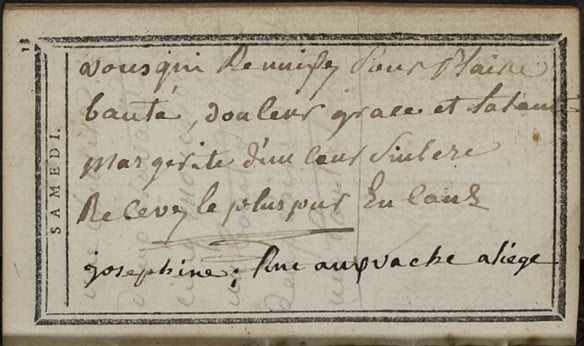 SAMEDI.
vous qui Reunisez Pour Plaire
bauté, douleur grace et talant
margerite d'un cœur Sinsere
Recevez le plus pur En
josephine; Rue aux vache a liége